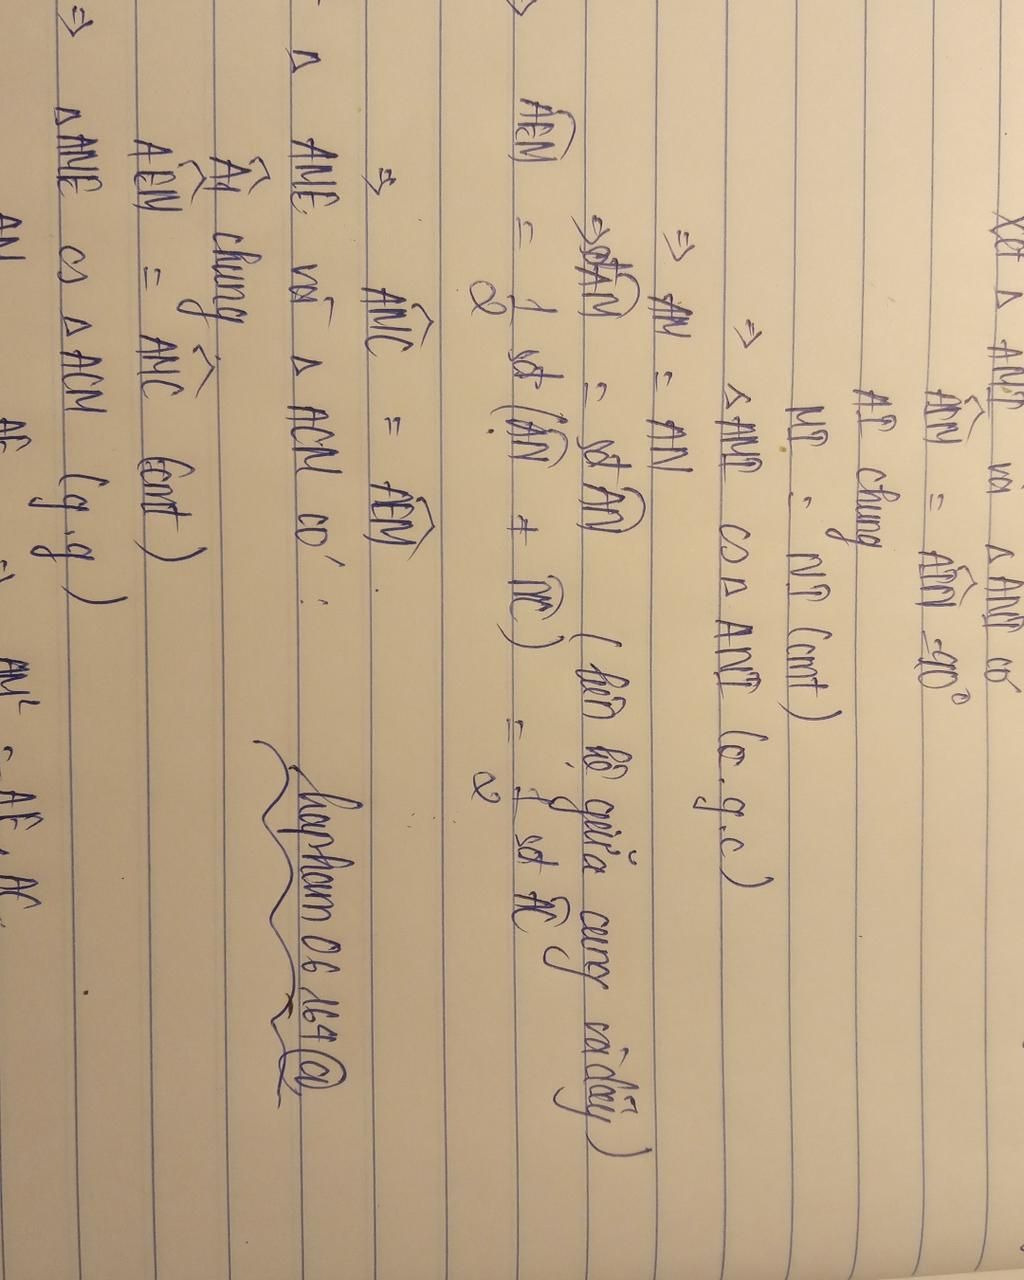 Xét Δ AMI và Δ ANI có
AIM = AIN = 90°
AI chung
MI = NI (cmt)
=> Δ AMI ∽ Δ ANI (c.g.c)
=> AN = AN
=> sđ AN = sđ AN (liên hệ giữa cung và dây)
=> AEM = 1/2 sđ (AN + MC) = 1/2 sđ AC
=> AMC = AEM
Δ AME và Δ ACM có :
A1 chung
AEM = AMC (cmt)
=> Δ AME ∽ Δ ACM (g.g)
AM² = AE . AC
hapham 06 164 @